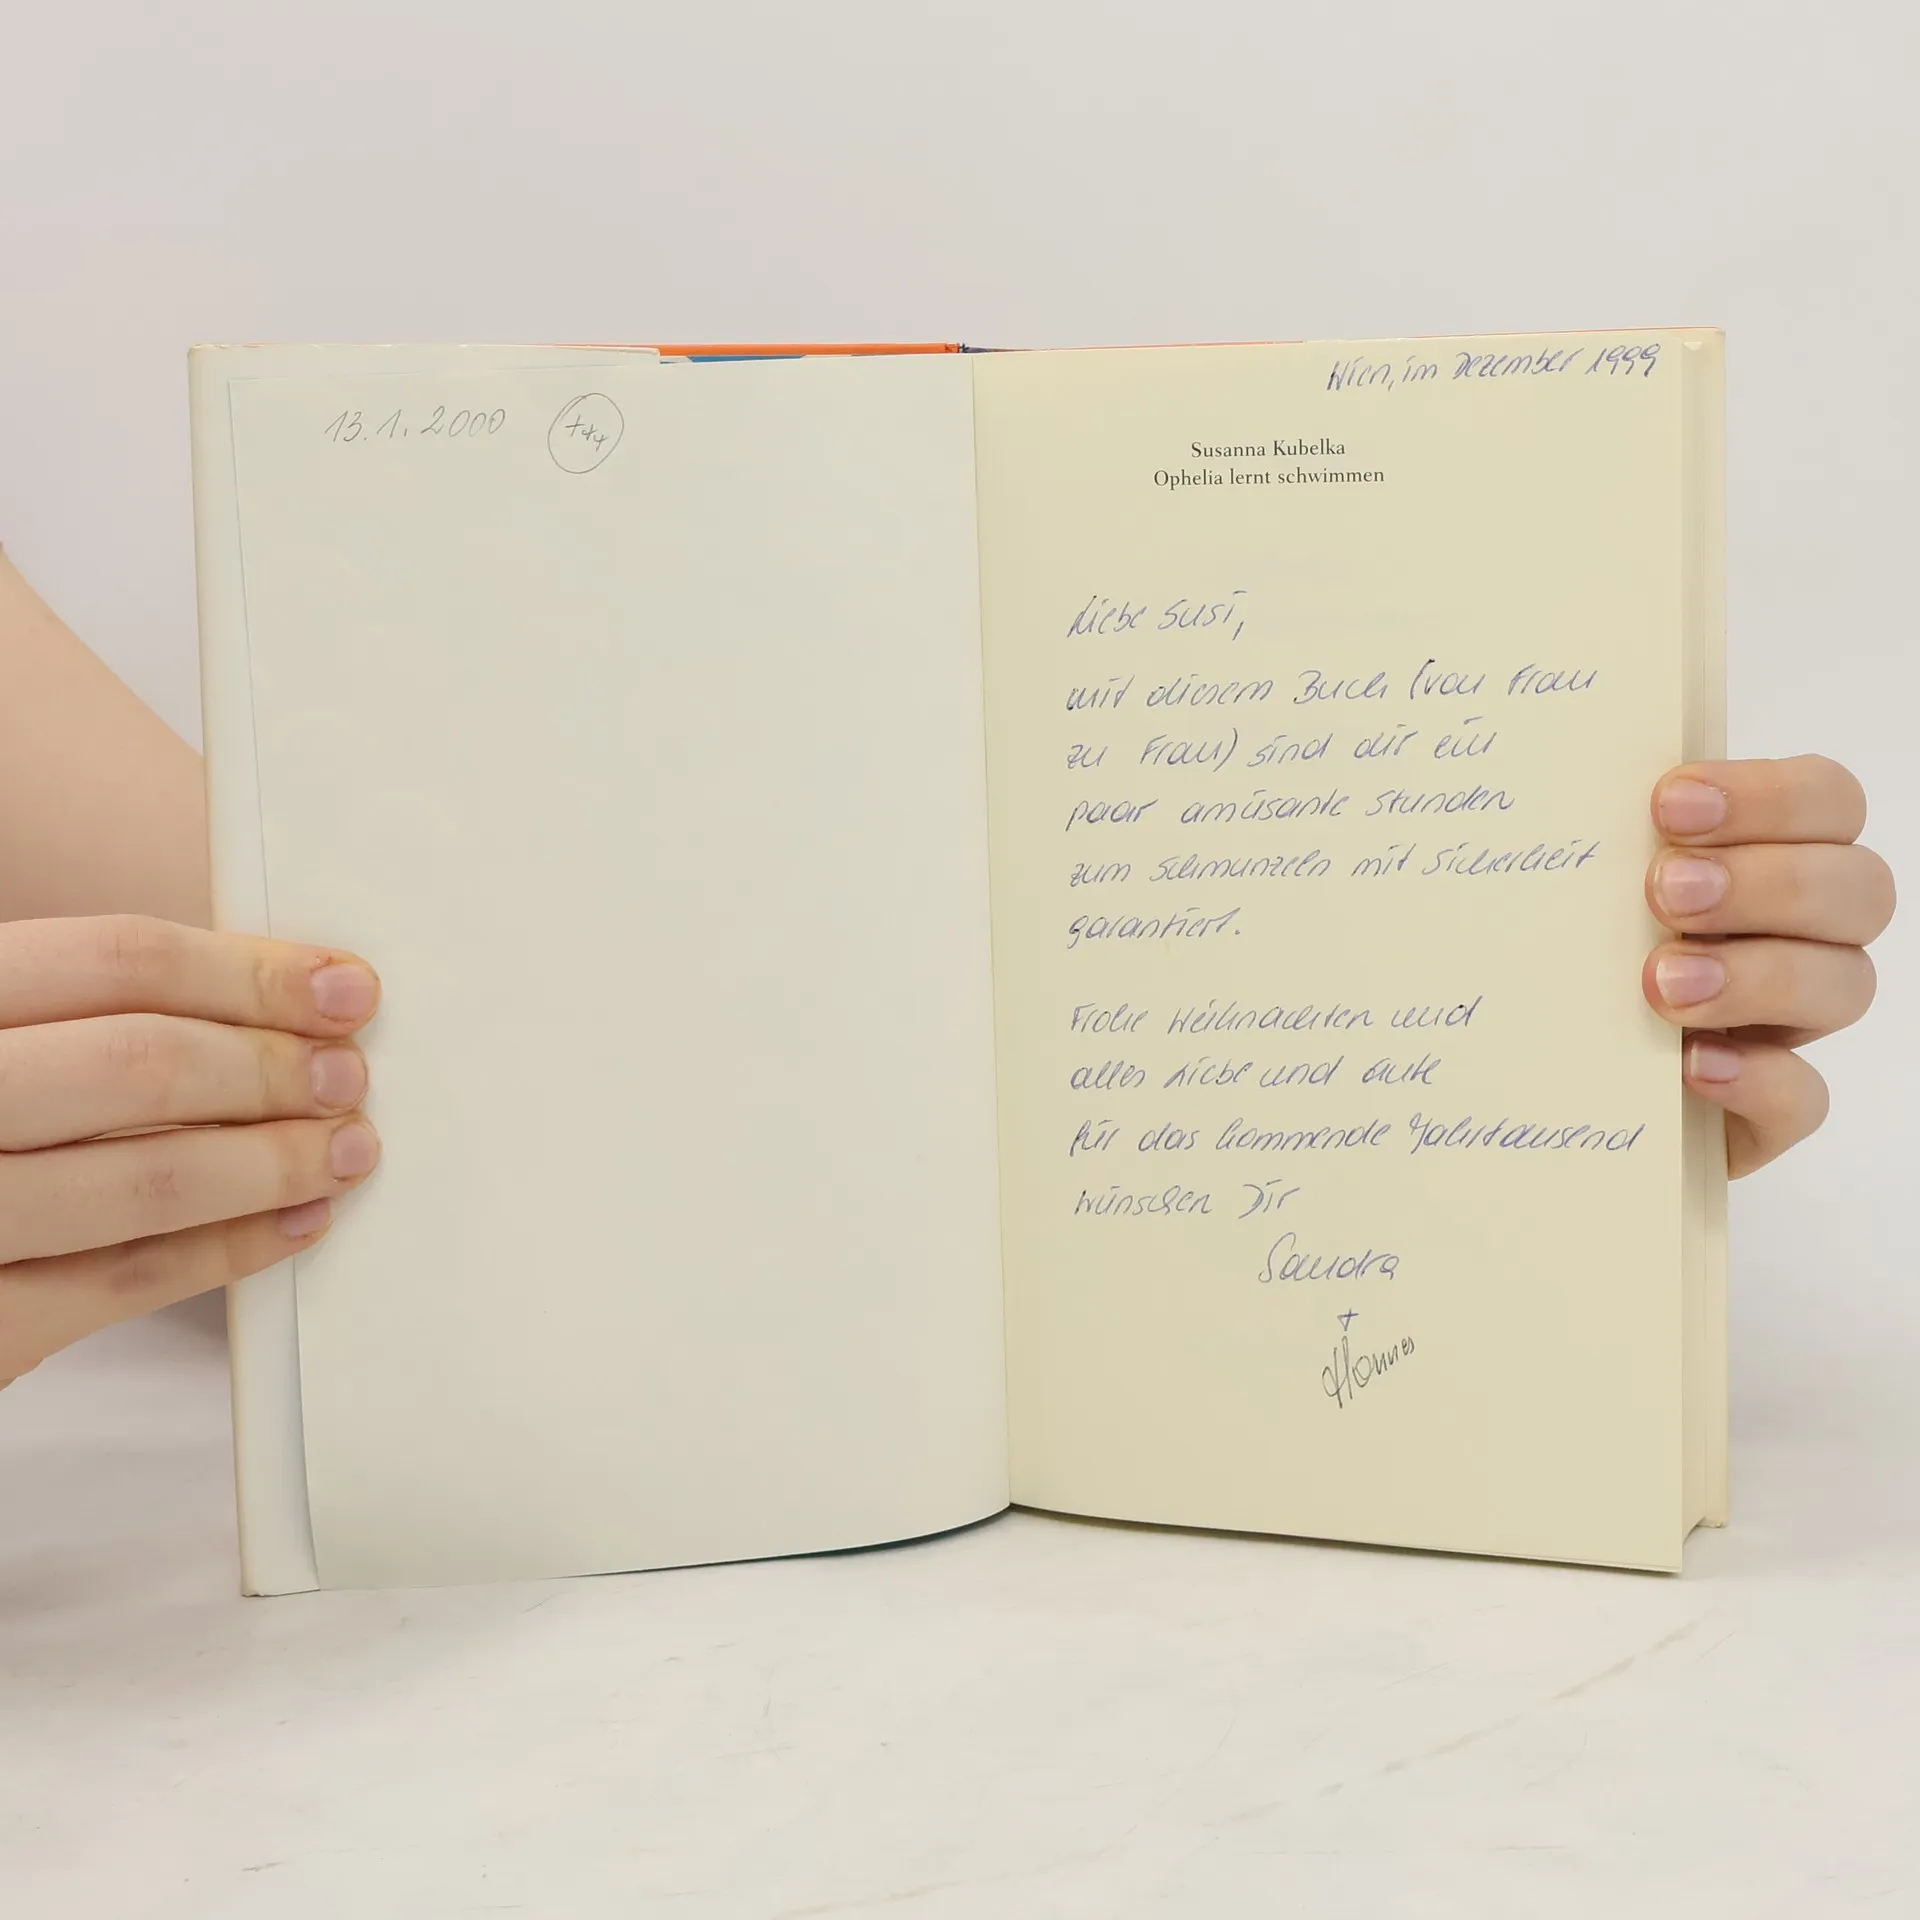 13.1.2000
+++
Wien, im Dezember 1999
Susanna Kubelka
Ophelia lernt schwimmen
Liebe Susi,
mit diesem Buch (von Frau
zu Frau) sind dir ein
paar amüsante Stunden
zum Schmunzeln mit Sicherheit
garantiert.
Frohe Weihnachten und
alles Liebe und Gute
für das kommende Jahrtausend
wünschen Dir
Sandra
+
Hannes